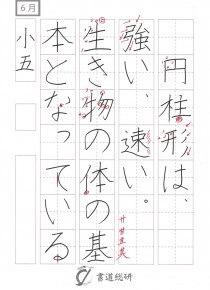 6月
円柱形は、
強い、速い。
生き物の体の基
本となっている
小五
廿 甘 並 其
書道総研